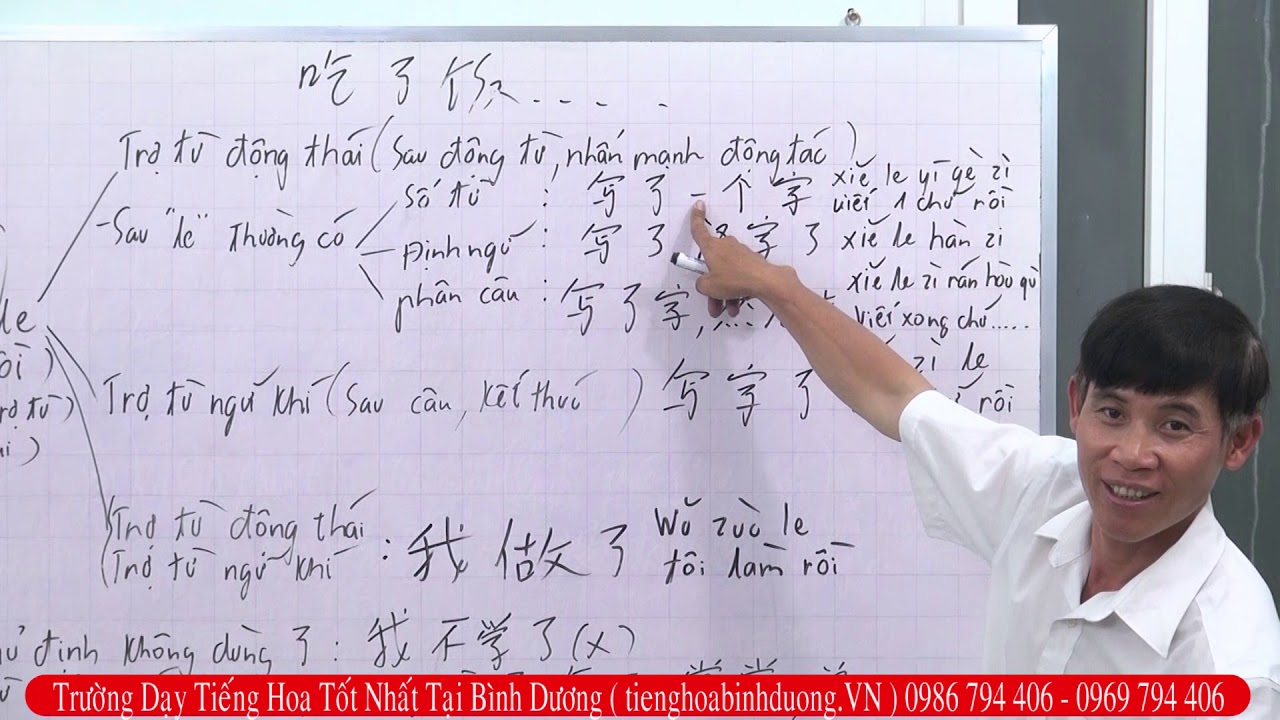 吃了饭......
Trợ từ động thái (Sau động từ, nhấn mạnh động tác)
-Sau "le" thường có
số từ : 写了一个字 xiě le yī gè zì
viết 1 chữ rồi
Định ngữ : 写了 字了 xiě le hàn zì
phân câu : 写了字, xiě le zì rán hòu qù
viết xong chữ.....
le
Trợ từ ngữ khí (Sau câu, kết thúc) 写字了 zì le
rồi
Trợ từ động thái
Trợ từ ngữ khí : 我做了 Wǒ zuò le
tôi làm rồi
định không dùng了 : 我不学了(x)
Trường Dạy Tiếng Hoa Tốt Nhất Tại Bình Dương ( tienghoabinhduong.VN ) 0986 794 406 - 0969 794 406